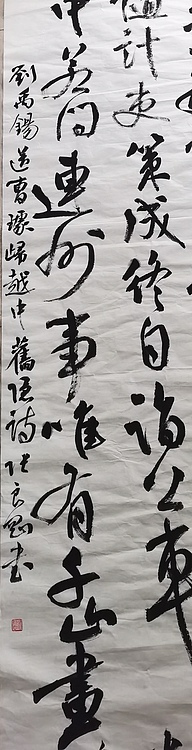 計吏策成終自詣公車
中若問連州事唯有千山畫
劉禹錫送曹璩歸越中舊隱詩 張良書